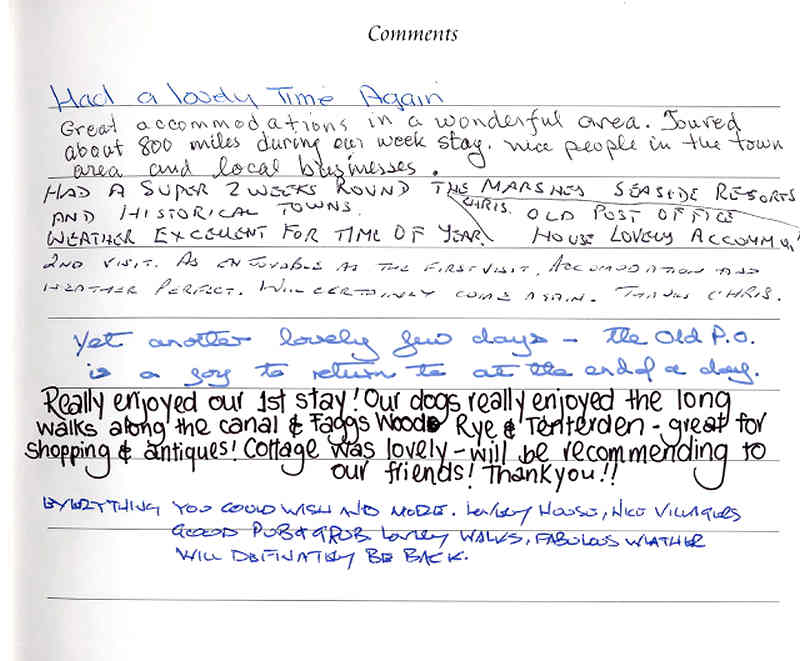 Comments
Had a lovely Time Again
Great accommodations in a wonderful area. Toured
about 800 miles during our week stay. nice people in the town
area and local businesses.
HAD A SUPER 2 WEEKS ROUND THE MARSHES SEASIDE RESORTS
AND HISTORICAL TOWNS. CHRIS. OLD POST OFFICE
WEATHER EXCELLENT FOR TIME OF YEAR. HOUSE LOVELY ACCOMM
2ND VISIT. AS ENJOYABLE AS THE FIRST VISIT, ACCOMODATION AND
WEATHER PERFECT. WILL CERTAINLY COME AGAIN. THANKS CHRIS.
Yet another lovely few days - the Old P.O.
is a joy to return to at the end of a day.
Really enjoyed our 1st stay! Our dogs really enjoyed the long
walks along the canal & Faggs Wood Rye & Tenterden - great for
shopping & antiques! Cottage was lovely - will be recommending to
our friends! Thankyou!!
EVERYTHING YOU COULD WISH AND MORE. LOVELY HOUSE, NICE VILLAGERS
GOOD PUB & GRUB LOVELY WALKS, FABULOUS WEATHER
WILL DEFINATELY BE BACK.